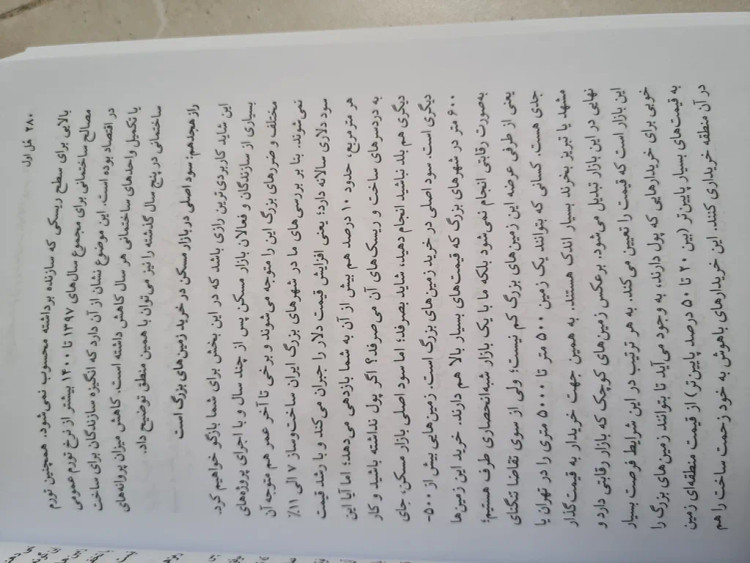 ۲۸۰ فصل اول
بالایی برای سطح ریسکی که سازنده برداشته محسوب نمی‌شود. همچنین تورم
مصالح ساختمانی برای مجموع سال‌های ۱۳۹۷ تا ۱۴۰۰ بیشتر از نرخ تورم عمومی
در اقتصاد بوده است. این موضوع نشان از آن دارد که انگیزه سازندگان برای ساخت
یا تکمیل واحدهای ساختمانی هر سال کاهش داشته است. کاهش میزان پروانه‌های
ساختمانی در پنج سال گذشته را نیز می‌توان با همین منطق توضیح داد.
راز هجدهم: سود اصلی در بازار مسکن در خرید زمین‌های بزرگ است
این شاید کاربردی‌ترین رازی باشد که در این بخش برای شما بازگو خواهیم کرد.
بسیاری از سازندگان و فعالان بازار مسکن پس از چند سال و با اجرای پروژه‌های
مختلف و ضررهای بزرگ این را متوجه می‌شوند و برخی تا آخر عمر هم متوجه آن
نمی‌شوند. بنا بر بررسی‌های ما در شهرهای بزرگ ایران ساخت‌وساز ۷ الی ۱۱٪
سود دلاری سالانه دارد؛ یعنی افزایش قیمت دلار را جبران می‌کند و با رشد قیمت
هر مترمربع، حدود ۱۰ درصد هم بیش از آن به شما بازدهی می‌دهد؛ اما آیا این
به دردسرهای ساخت و ریسک‌های آن می‌صرفد؟ اگر پول نداشته باشید و کار
دیگری هم بلد نباشید انجام دهید، شاید بصرفد؛ اما سود اصلی بازار مسکن، جای
دیگری است. سود اصلی در خرید زمین‌های بزرگ است. زمین‌هایی بیش از ۵۰۰-
۶۰۰ متر در شهرهای بزرگ که قیمت‌های بسیار بالا هم دارند. خرید این زمین‌ها
به‌صورت رقابتی انجام نمی‌شود بلکه ما با یک بازار شبه‌انحصاری طرف هستیم؛
یعنی از طرفی عرضه این زمین‌های بزرگ کم نیست؛ ولی از سوی تقاضا تنگنای
جدی هست. کسانی که بتوانند یک زمین ۵۰۰ متر تا ۵۰۰۰ متری را در تهران یا
مشهد یا تبریز بخرند بسیار اندک هستند. به همین جهت خریدار به قیمت‌گذار
نهایی در این بازار تبدیل می‌شود. برعکس زمین‌های کوچک که بازار رقابتی دارد و
این بازار است که قیمت را تعیین می‌کند. به هر ترتیب در این شرایط فرصت بسیار
خوبی برای خریدارهایی که پول دارند، به وجود می‌آید تا بتوانند زمین‌های بزرگ را
به قیمت‌های بسیار پایین‌تر (بین ۲۰ تا ۵۰ درصد پایین‌تر) از قیمت منطقه‌ای زمین
در آن منطقه خریداری کنند. این خریدارهای باهوش به خود زحمت ساخت را هم